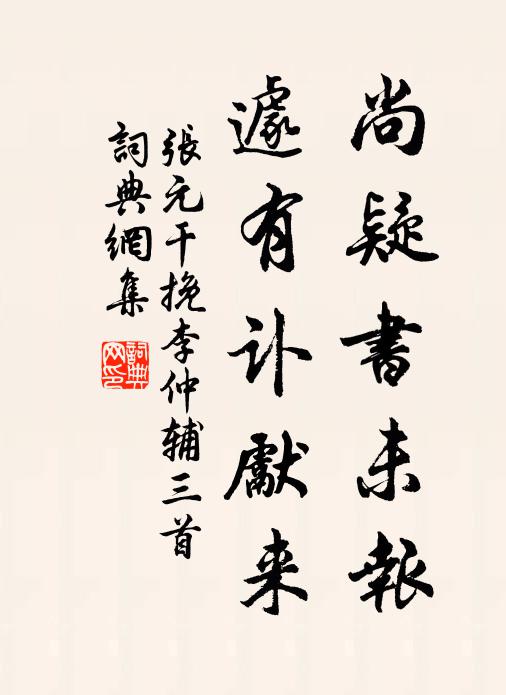 尚疑書未報
遽有訃獻来
張元干挽李仲辅三首
詞典網集
詞典网印